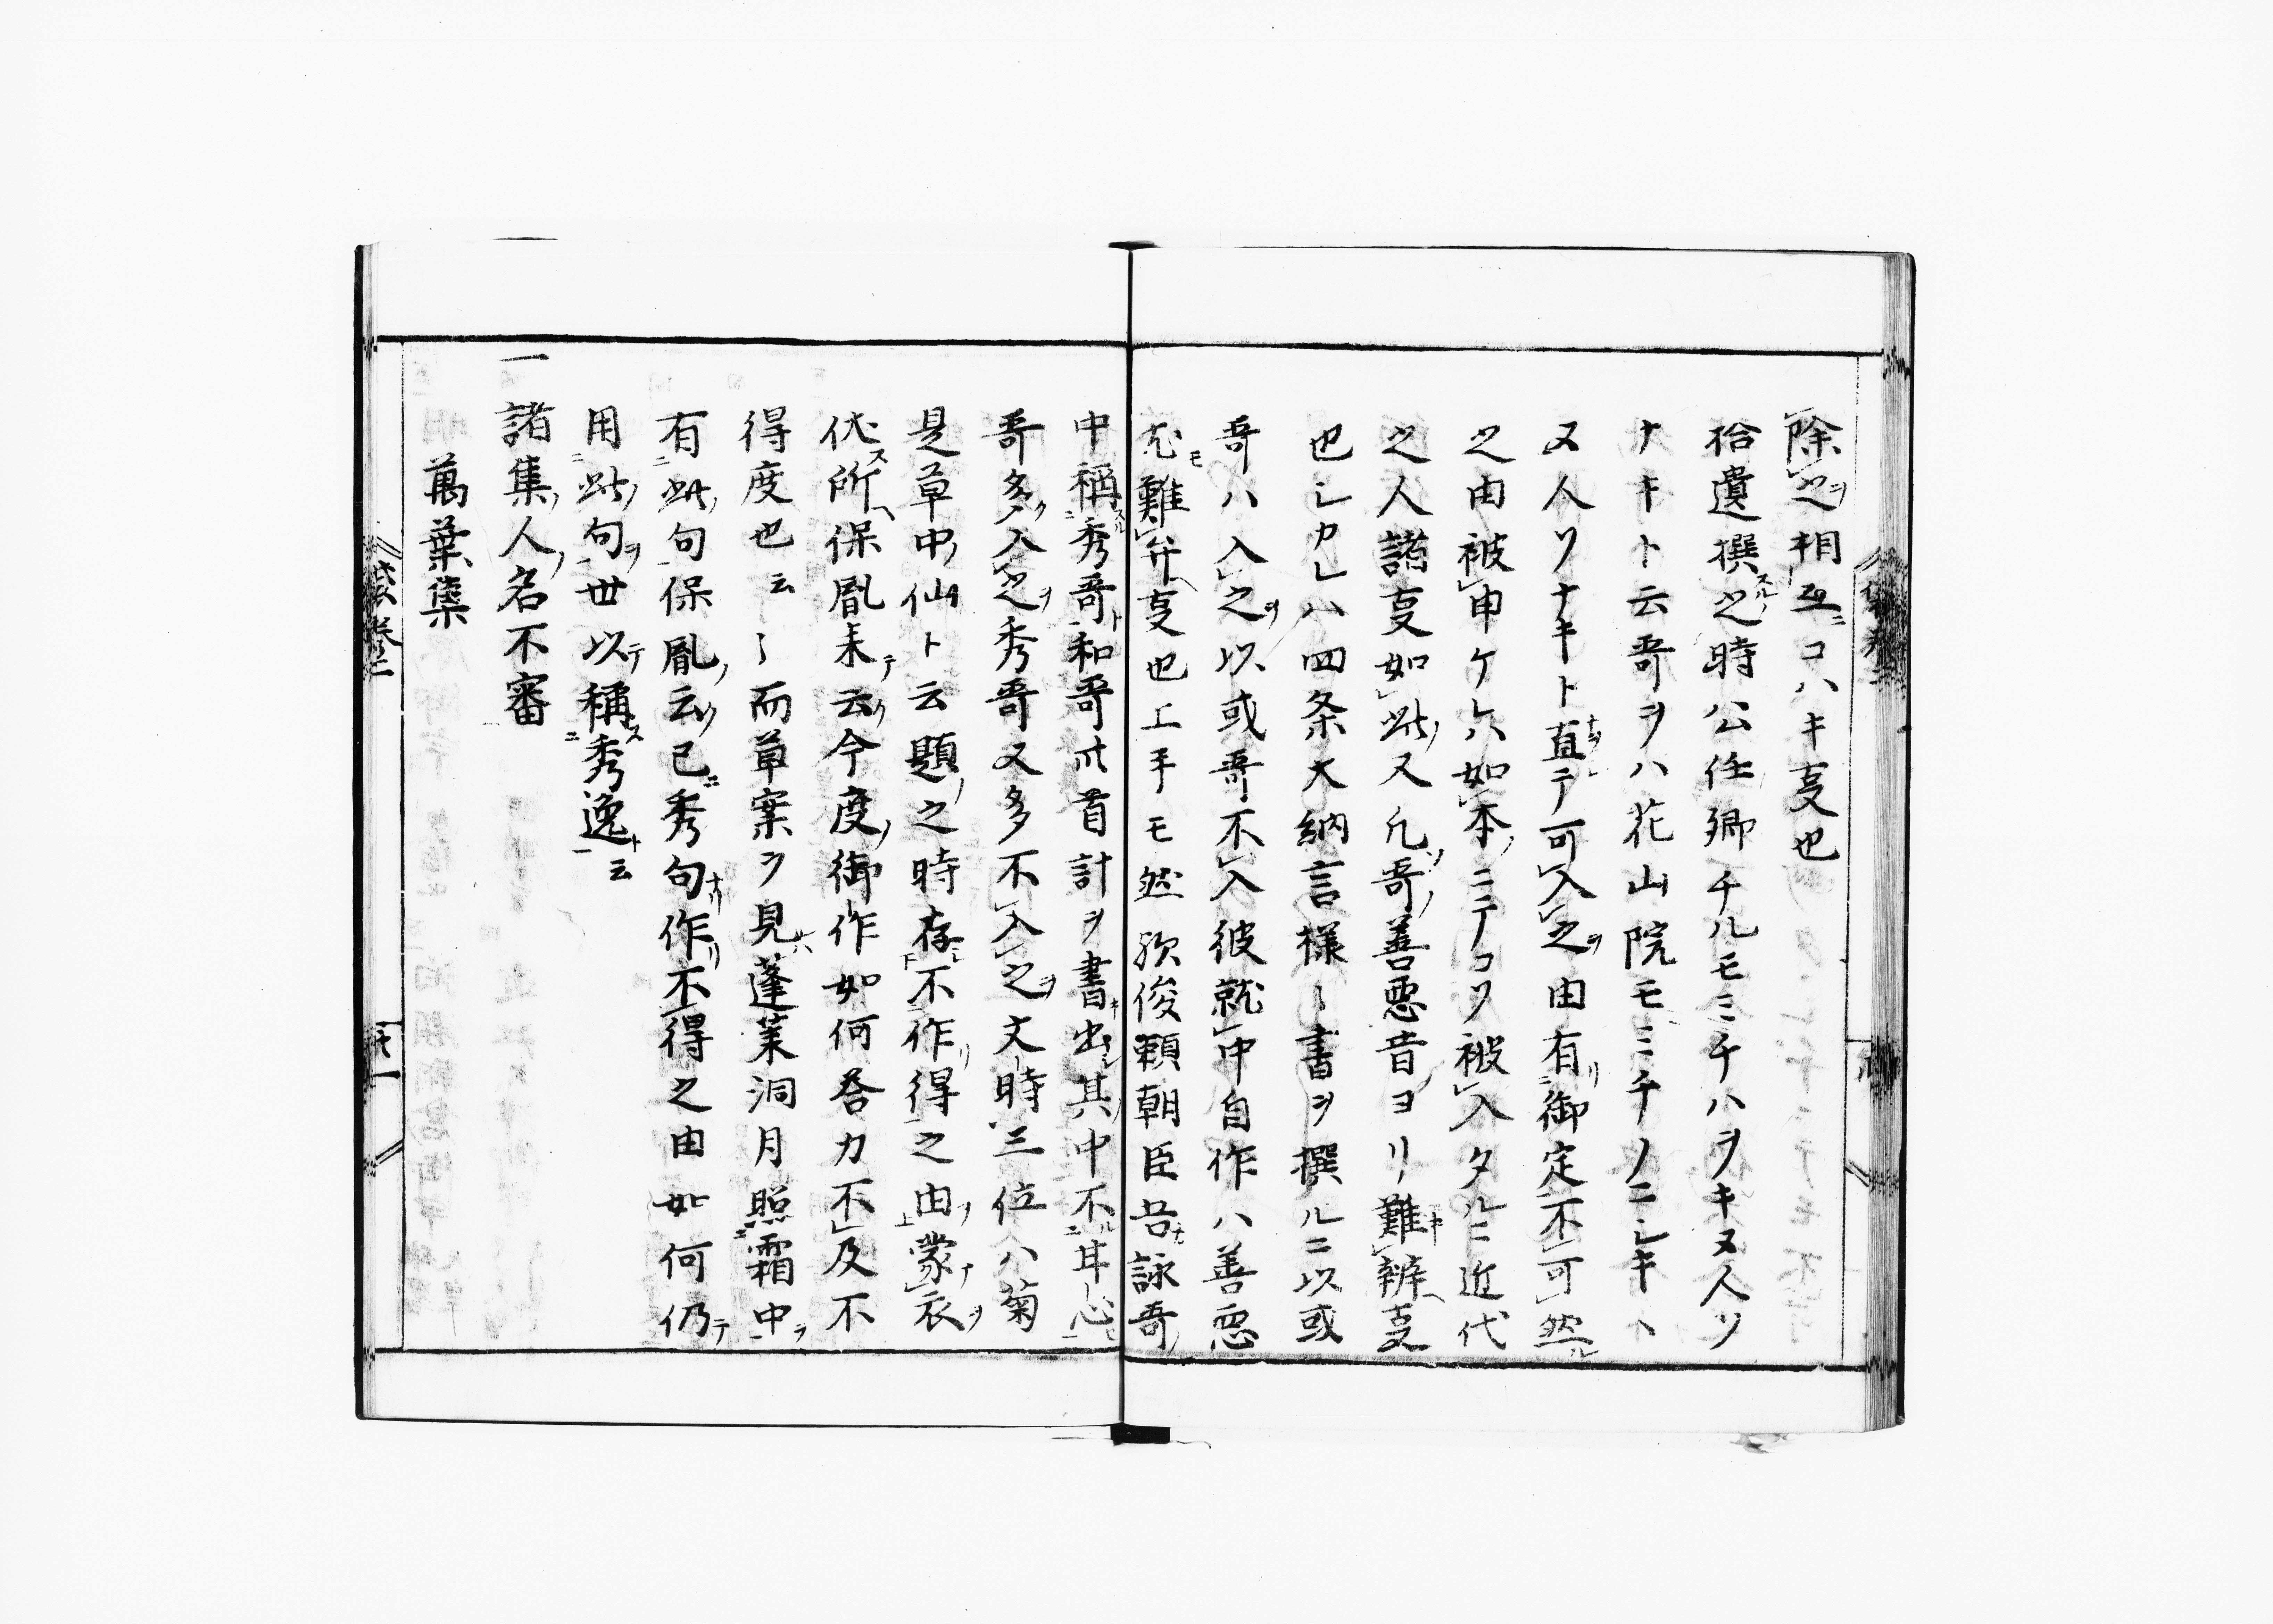 除之相互コハキ叓也
拾遺撰之時公任卿チルモミチハヲキヌ人ソ
ナキト云哥ヲハ花山院モミチノニシキト
ヌ人ソナキト直テ可入之由有御定不可然
之由被申ケ六如本ニテコソ被入タルニ近代
之人諸叓如此又凡哥善悪昔ヨリ難辨叓
也シカレハ四条大納言様〻書ヲ撰ルニ以或
哥ハ入之以或哥不入彼就中自作ハ善悪
尤難弁叓也上手モ然欤俊頼朝臣吾詠哥
中稱秀哥和哥廿首計ヲ書出其中不耳心
哥多入之秀哥又多不入之文時三位ハ菊
是草中仙ト云題之時存不作得之由蒙衣
伏所保胤来云今度御作如何答力不及不
得度也云〻而草案ヲ見蓬莱洞月照霜中
有此句保胤云已秀句作不得之由如何仍
用此句世以稱秀逸云
一諸集人名不審
萬葉集
袋巻二
卅一